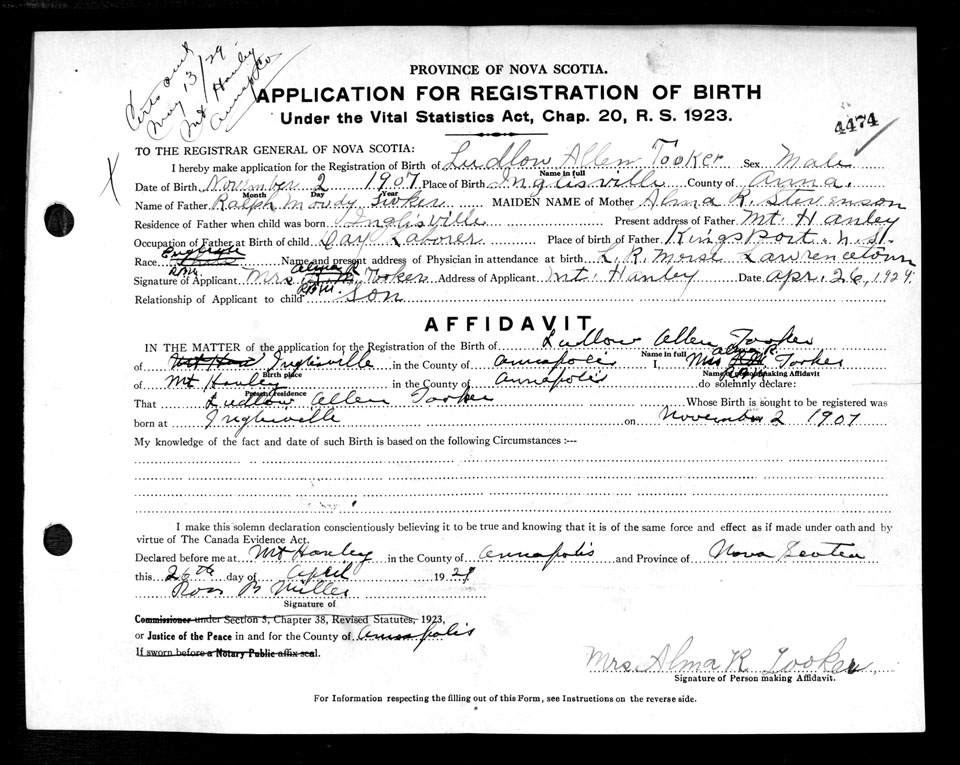 Certs sent
May 13/29
Mt Hanley
Annap Co
PROVINCE OF NOVA SCOTIA.
APPLICATION FOR REGISTRATION OF BIRTH
Under the Vital Statistics Act, Chap. 20, R. S. 1923.
4474
TO THE REGISTRAR GENERAL OF NOVA SCOTIA:
I hereby make application for the Registration of Birth of Ludlow Allen Tooker Sex Male
Name in full
Date of Birth November 2 1907 Place of Birth Inglisville County of Anna.
Month Day Year
Name of Father Ralph Moody Tooker MAIDEN NAME of Mother Alma R. Stevenson
Residence of Father when child was born Inglisville Present address of Father Mt. Hanley
Occupation of Father at Birth of child Day Laborer Place of birth of Father Kingsport. N.S.
Race Name and present address of Physician in attendance at birth L. R. Morse Lawrencetown
R.B.M.
Signature of Applicant Mrs. Alma R Tooker Address of Applicant Mt. Hanley Date Apr. 26, 1929.
R.B.M.
Relationship of Applicant to child Son
AFFIDAVIT
IN THE MATTER of the application for the Registration of the Birth of Ludlow Allen Tooker
Name in full
of Mt Han Inglisville in the County of Annapolis I, Mrs Alma R. Tooker
Birth place Name of person making Affidavit
of Mt Hanley in the County of Annapolis do solemnly declare:
Present residence
That Ludlow Allen Tooker Whose Birth is sought to be registered was
born at Inglisville on November 2 1907
My knowledge of the fact and date of such Birth is based on the following Circumstances :---
I make this solemn declaration conscientiously believing it to be true and knowing that it is of the same force and effect as if made under oath and by
virtue of The Canada Evidence Act.
Declared before me at Mt Hanley in the County of Annapolis and Province of Nova Scotia
this 26th day of April 1929
Ross B Miller
Signature of
Commissioner under Section 5, Chapter 38, Revised Statutes, 1923,
or Justice of the Peace in and for the County of Annapolis
If sworn before a Notary Public affix seal.
Mrs. Alma R Tooker
Signature of Person making Affidavit.
For Information respecting the filling out of this Form, see Instructions on the reverse side.